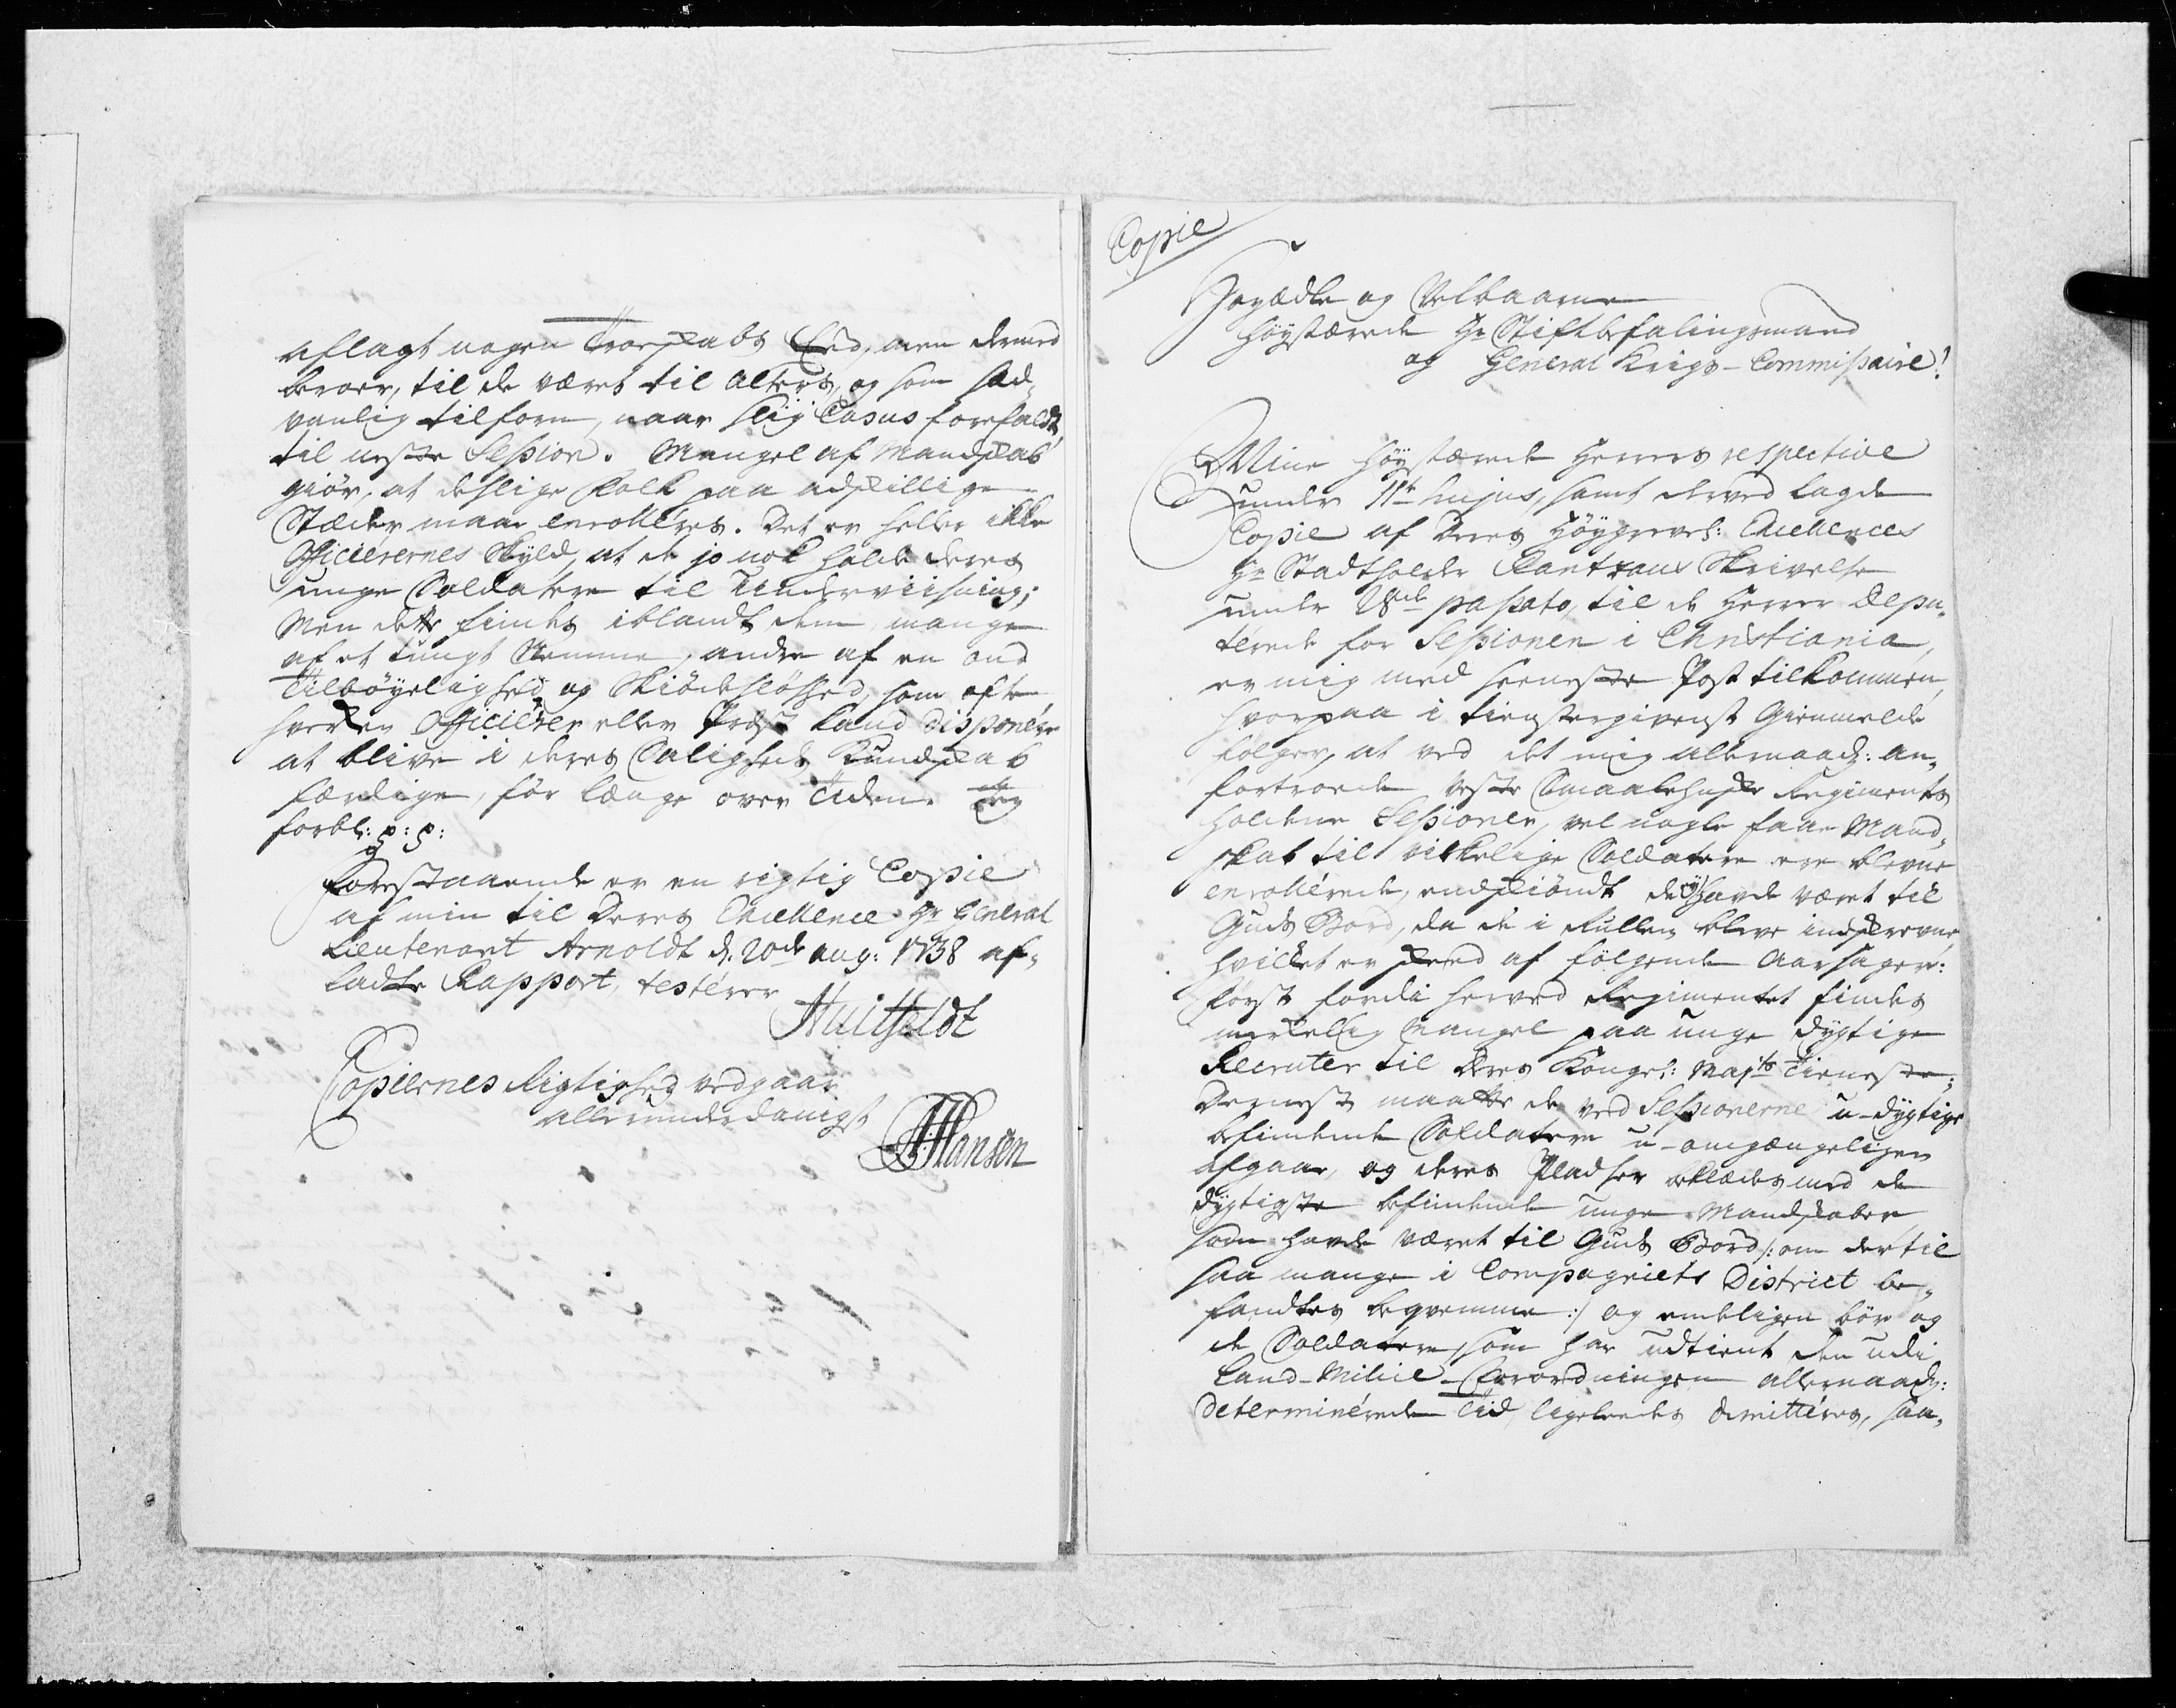 aflagt nogen Troeskabs Eed, men dermed
beroer, til de været til Alters, og som sæd„
vanlig tilforn, naar slig Casus forefaldt,
til neste Session. Mangel af Mandskab
giør, at deslige Folk paa adskillige
Stæder maae enrolleres. Det er heller ikke
Officierernes Skyld, at de jo nok holde deres
unge Soldatere til Underviisning;
Men dette findes iblandt dem mange
af et tungt Nemme, andre af en ond
Tilbøyelighed og Skiødesløshed, som ofte
hverken Officierer eller Præst kand disponére
at blive i deres Saligheds Kundskab
færdige, før længe over Tiden. Jeg
forbl: p: p:
Forestaaende er en rigtig Copie
af min til Deres Excellence Hr General
Lieutenant Arnoldt d. 20de Aug: 1738 af„
ladte Rapport, testérer
Huitfeldt
Copiernes Rigtighed vedgaar
allerunderdanigst
Hansen
Copie
Høyædle og Velbaarne
Høystærede Hr Stiftbefalingsmand
og General Krigs-Commissaire!
Mine Høystærede Herrers respective
under 11te hujus, samt derved lagde
Copie af Deres Høygrevel: Excellences
Hr Stadtholder Rantzaus Skrivelse
under 28de passato, til de Herrer Depu„
terede for Sessionen i Christiania,
er mig med seeneste Post tilkommen,
hvorpaa i tienstergivenst Giennelde
følger, at ved det mig allernaad: an„
fortroede Veste Smaalehnske Regiments
holdene Sessioner, vel nogle faae Mand„
skab til virkelige Soldatere ere blevne
enrollérede, endskiøndt de ey havde været til
Guds Bord, da de i Rullen bleve indskrevne,
hvilket er skeed af følgende Aarsager:
først fordi herved Regimentet findes
merkellig Mangel paa unge dygtige
Recruter til Deres Kongel: Majts Tieneste;
Dernest maatte de ved Sessionerne u-dygtige
befindende Soldatere u-omgængeligen
afgaae, og deres Pladser beklædes med de
dygtigste befindende unge Mandskaber
som havde været til Guds Bord /: om dertil
saa mange i Compagniets District be„
fandtes beqvemme :/ og endeligen bør og
de Soldatere som har udtient den udi
Land-Milice-Forordningen allernaad:
determinérede Tid, ligeledes dimittéres, saa„